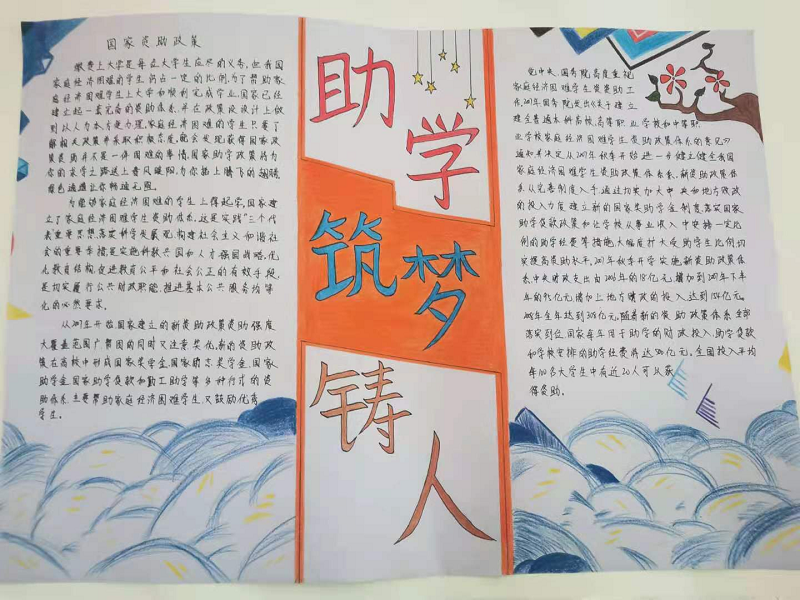 国家资助政策
缴费上大学是每名大学生应尽的义务,但我国
家庭经济困难的学生仍占一定的比例,为了帮助家
庭经济困难学生上大学和顺利完成学业,国家已经
建立起一套完备的资助体系,并在政策设设计上做
到以人为本方便办理,家庭经济困难的学生只要了
解相关政策并采取积极态度,就会发现获得国家政
策资助并不是一件困难的事情,国家助学政策将为
你的求学之路送上春风暖阳,为你插上腾飞的翅膀
绿色通道让你畅通无阻。
为能够家庭经济困难的学生上得起学,国家建
立了家庭经济困难学生资助体系,这是实践"三个代
表重要思想,落实科学发展观,构建社会主义和谐社
会的重要举措,是实施科教兴国和人才强国战略,优
化教育结构,促进教育公平和社会公正的有效手段,
是切实履行公共财政职能,推进基本公共服务均等
化的必然要求。
从2007年开始国家建立的新资助政策资助强度
大覆盖范围广兼困的同时又注重奖优,新的资助政
策在高校中形成国家奖学金,国家励志奖学金,国家
助学金,国家助学贷款和勤工助学等多种形式的资
助体系,主要帮助家庭经济困难学生,又鼓励优秀
学生。
助学
筑梦
铸人
党中央、国务院高度重视
家庭经济困难学生资助工
作,2007年国务院是出《关于建立
健全普通本科高校,高等职业学校和中等职
业学校家庭经济困难学生资助政策体系的意见》
通知并决定,从2007年秋季开始进一步健立健全我国
家庭经济困难学生资助政策体系,新资助政策体
系从完善制度入手,通过切实加大中央和地方财政
的投入力度,建立新的国家奖助学金制度,落实国家
助学贷款政策和让学校从事业收入中安排一定比
例的助学经费等措施,大幅度扩大受助学生比例切
实提高资助水平,2007年秋季开学实施新资助政策体
系中央财政支出由2006年的18亿元增加到2007年下半
年的95亿元增加上地方财政的投入达到154亿元,
2008年全年达到308亿元,随着新的资助政策体系全部
落实到位,国家每年用于助学的财政投入,助学贷款
和学校安排的助学经费将达500亿元,全国投入平均
每100名大学生中有近20人可以获
得资助。